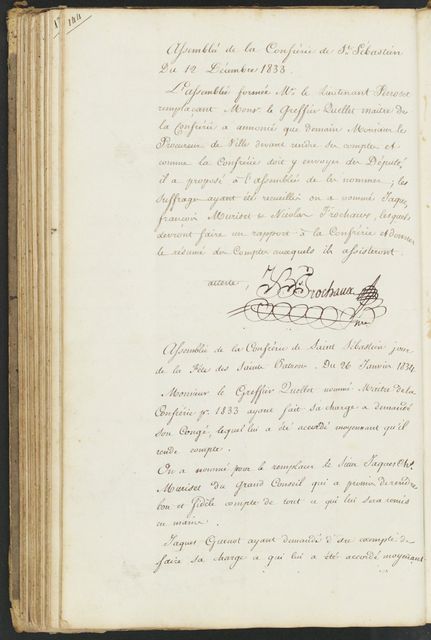 Assemblé de la Confrérie de St. Sébastien
Du 12 Décembre 1833.
L'assemblée formée Mr. le lieutenant
remplaçant Monsr. le Greffier Quellet maitre de
la Confrérie a annoncé que demain Monsieur le
Procureur de Ville devant rendre ses comptes et
comme la Confrérie doit y envoyer des Député
il a proposé à l'assemblée de les nommer; les
suffrages ayant été recueillis on a nommé Jaques
françois Muriset & Nicolas Frochaux, lesquels
devront faire un rapport à la Confrérie et donner
le résumé des Comptes auxquels ils assisteront.
atteste, Frochaux
Assemblée de la Confrérie de Saint Sébastien jour
de la Fête des Saints Patrons. Du 26 Janvier 1834
Monsieur le Greffier Quellet nommé Maitre de la
Confrérie pr. 1833 ayant fait sa charge a demandé
son Congé, lequel lui a été accordé moyennant qu'il
rende compte.
On a nommé pour le remplacer le Sieur Jaques
Muriset du Grand Conseil qui a promis de rendre
bon et fidèle compte de tout ce qui lui sera remis
en mains.
Jaques Guenot ayant demandé d'être exempté de
faire sa charge a qui lui a été accordé moyennant